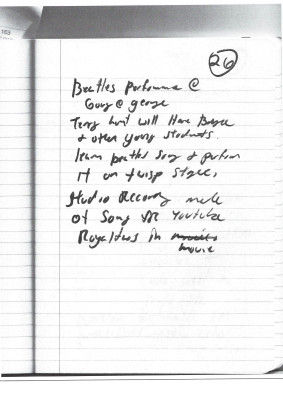 163
26
Beatles performa @
George
Terry hunt will Have Bryce
& other young students
learn beatles song & perform
it on stage.
Studio Recording made
of Song YouTube
Royalties in movie